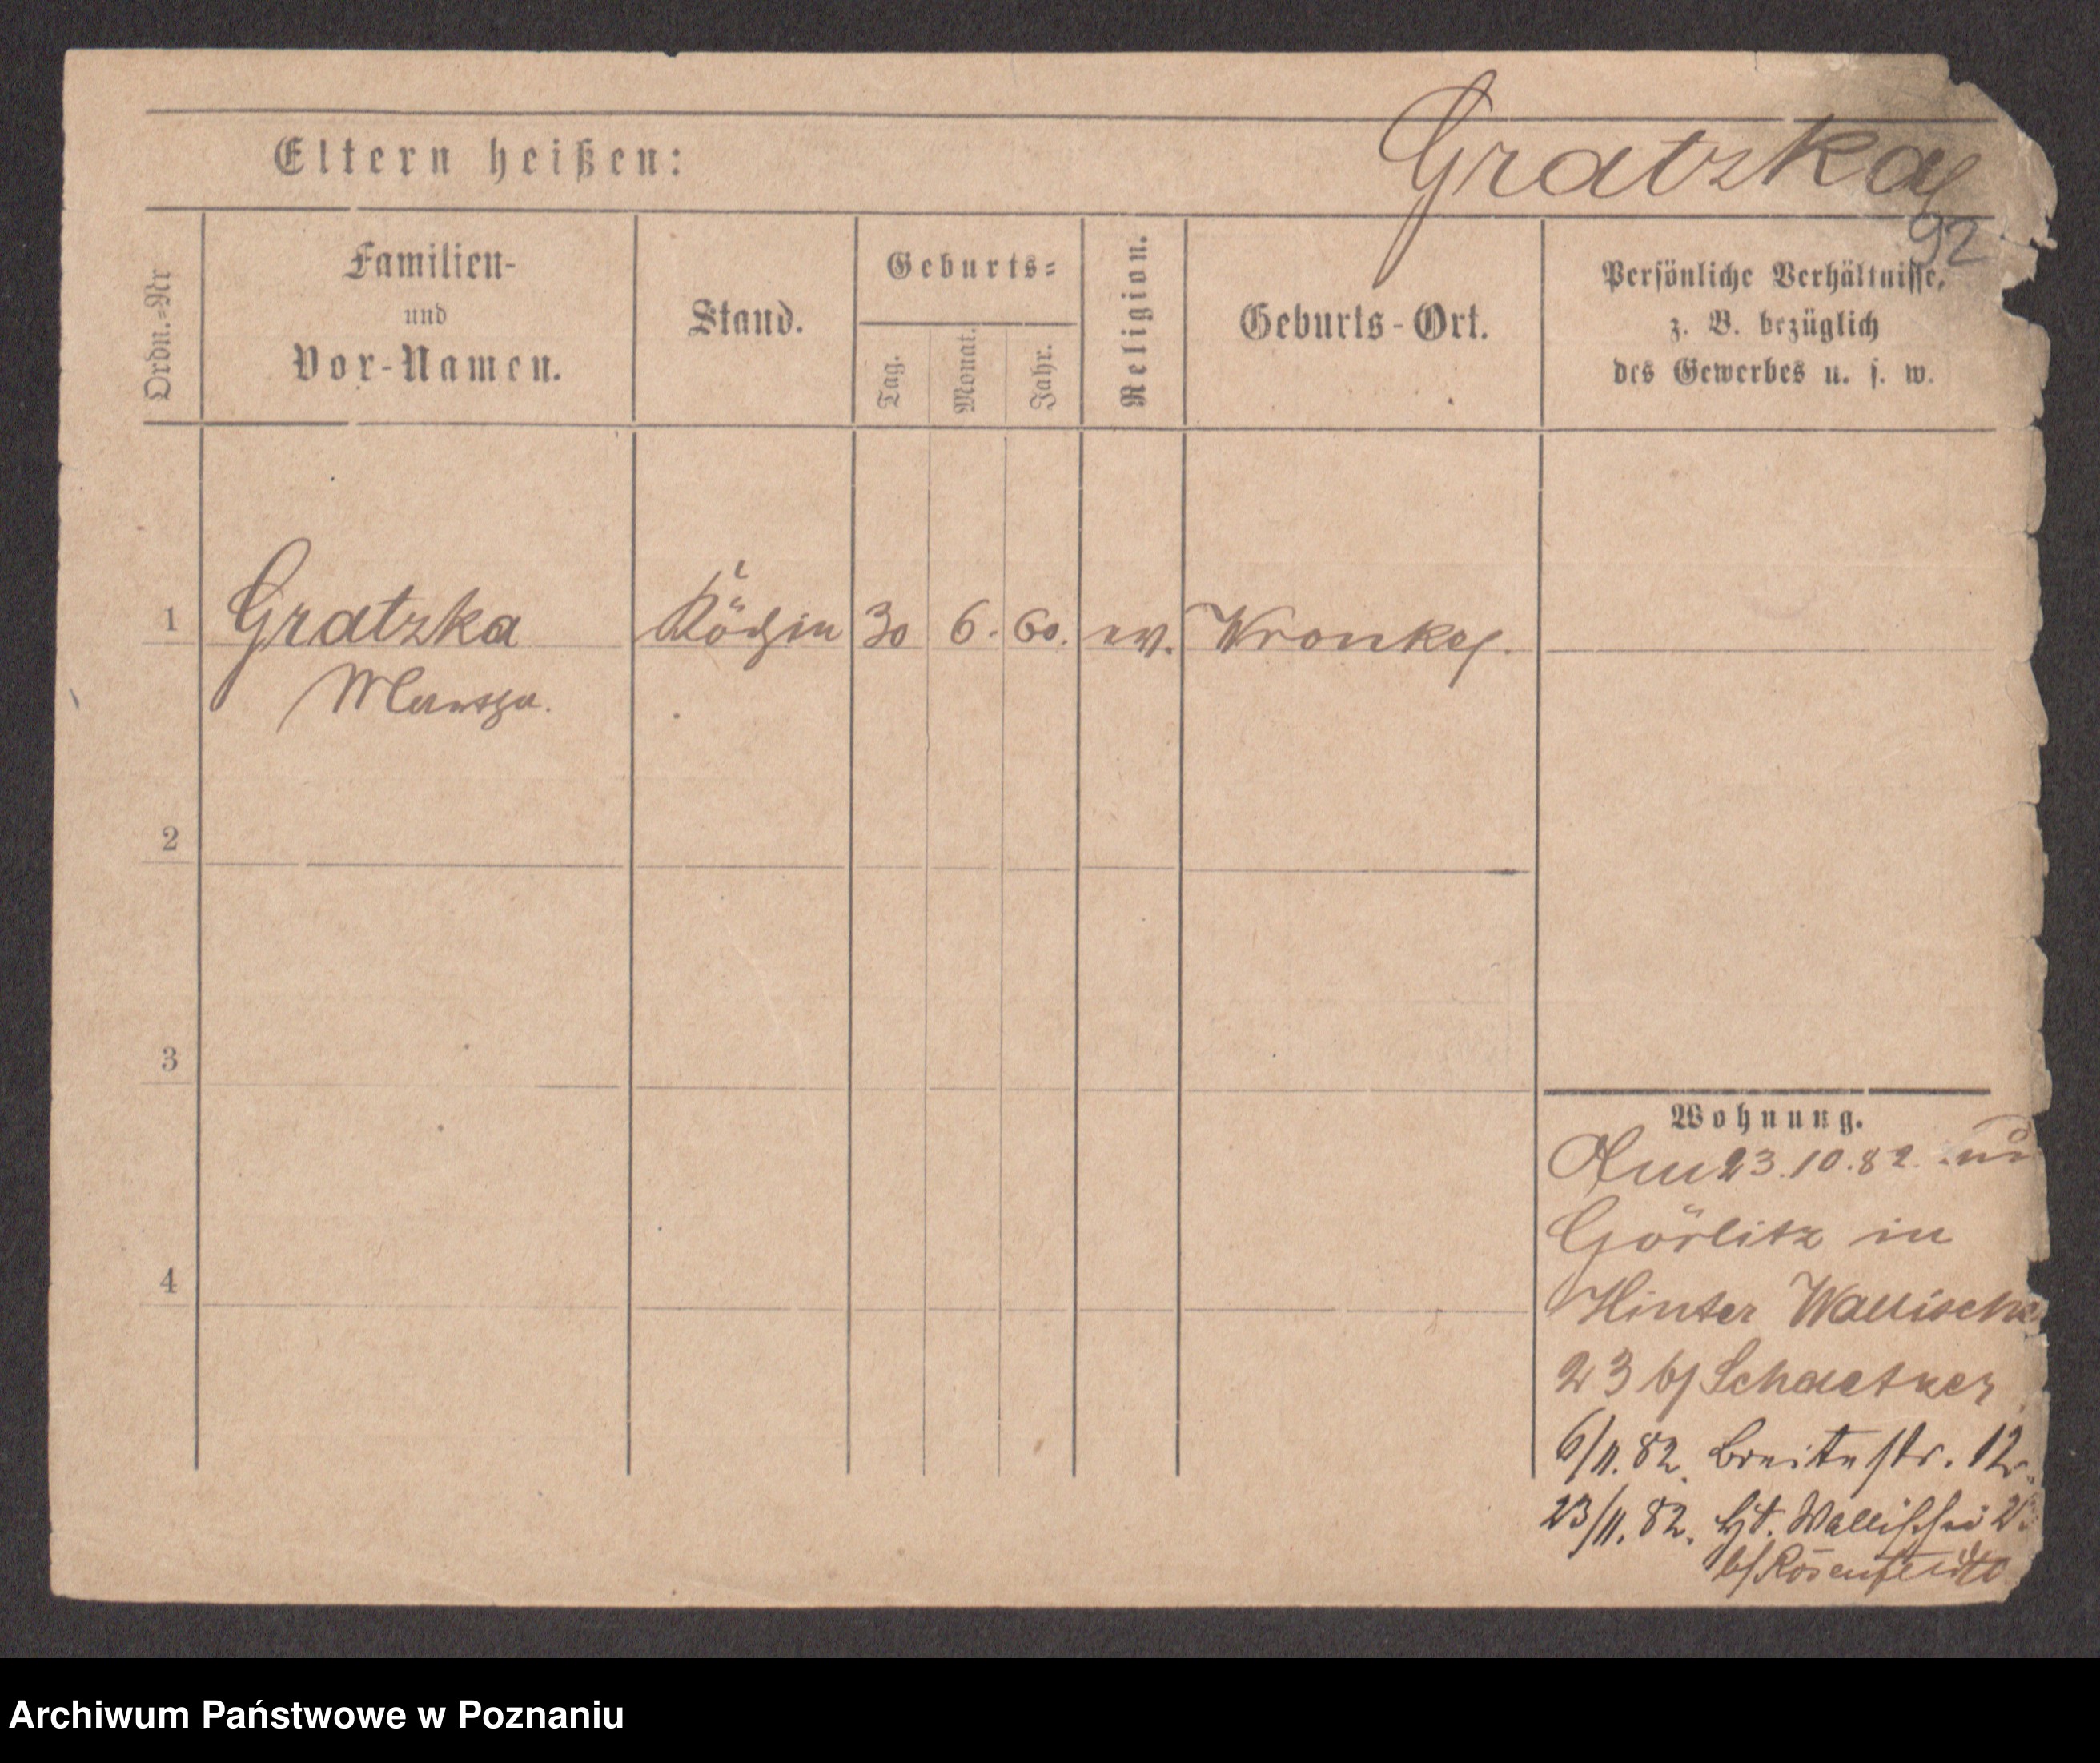 Gratzka
92
Eltern heißen:
Ordn.=Nr
Familien-
und
Vor-Namen.
Stand.
Geburts=
Tag.
Monat.
Jahr.
Religion.
Geburts-Ort.
Persönliche Verhältnisse,
z. B. bezüglich
des Gewerbes u. s. w.
1 Gratzka Köchin 30 6. 60. ev. Wronke.
Martha.
2
3
4
Wohnung.
Am 23.10.82.
Görlitz in
Hinter Wallische
23 b/
6/11.82. Breitestr. 12.
23/11.82. Ht. Wallischei
Archiwum Państwowe w Poznaniu